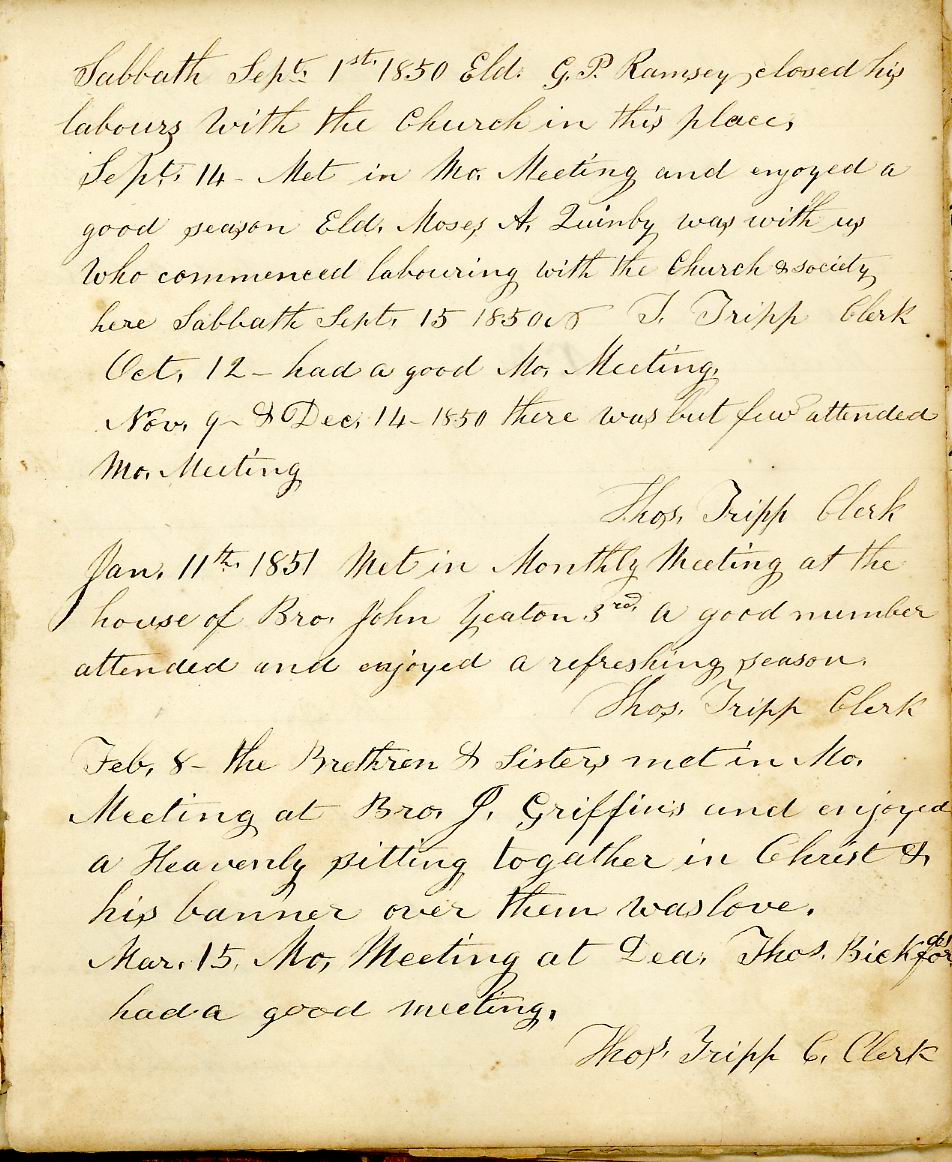 Sabbath Sept. 1st. 1850 Eld. G. P. Ramsey closed his
labours with the Church in this place.
Sept. 14 - Met in Mo. Meeting and enjoyed a
good season Eld. Moses A. Quinby was with us
Who commenced labouring with the Church & society
here Sabbath Sept. 15 1850 T. Tripp Clerk
Oct. 12 - had a good Mo. Meeting.
Nov. 9 - & Dec. 14 - 1850 there was but few attended
Mo. Meeting
Thos. Tripp Clerk
Jan. 11th. 1851 Met in Monthly Meeting at the
house of Bro. John Yeaton 3rd. A good number
attended and enjoyed a refreshing season.
Thos. Tripp Clerk
Feb. 8 - the Brethren & Sisters met in Mo.
Meeting at Bro. J. Griffins and enjoyed
a Heavenly sitting togather in Christ &
his banner over them was love.
Mar. 15. Mo. Meeting at Dea. Thos. Bickfords
had a good meeting.
Thos. Tripp C. Clerk